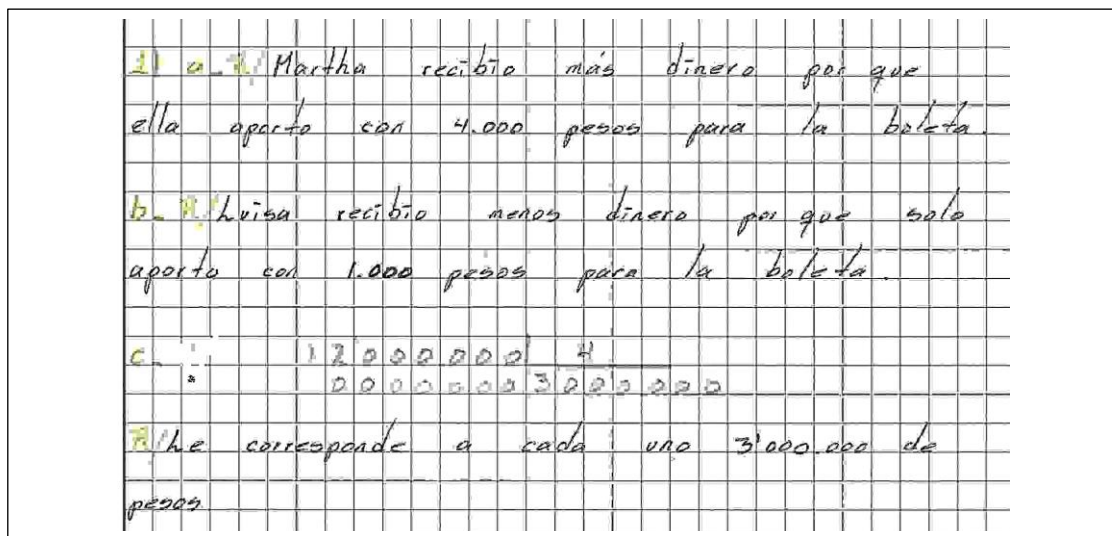 1) a_ R/ Martha recibio más dinero por que
ella aporto con 4.000 pesos para la boleta.
b_ R/ Luisa recibio menos dinero por que solo
aporto con 1.000 pesos para la boleta.
c_ ÷ 12000000 4
0000000 3000000
R/ Le corresponde a cada uno 3'000.000 de
pesos